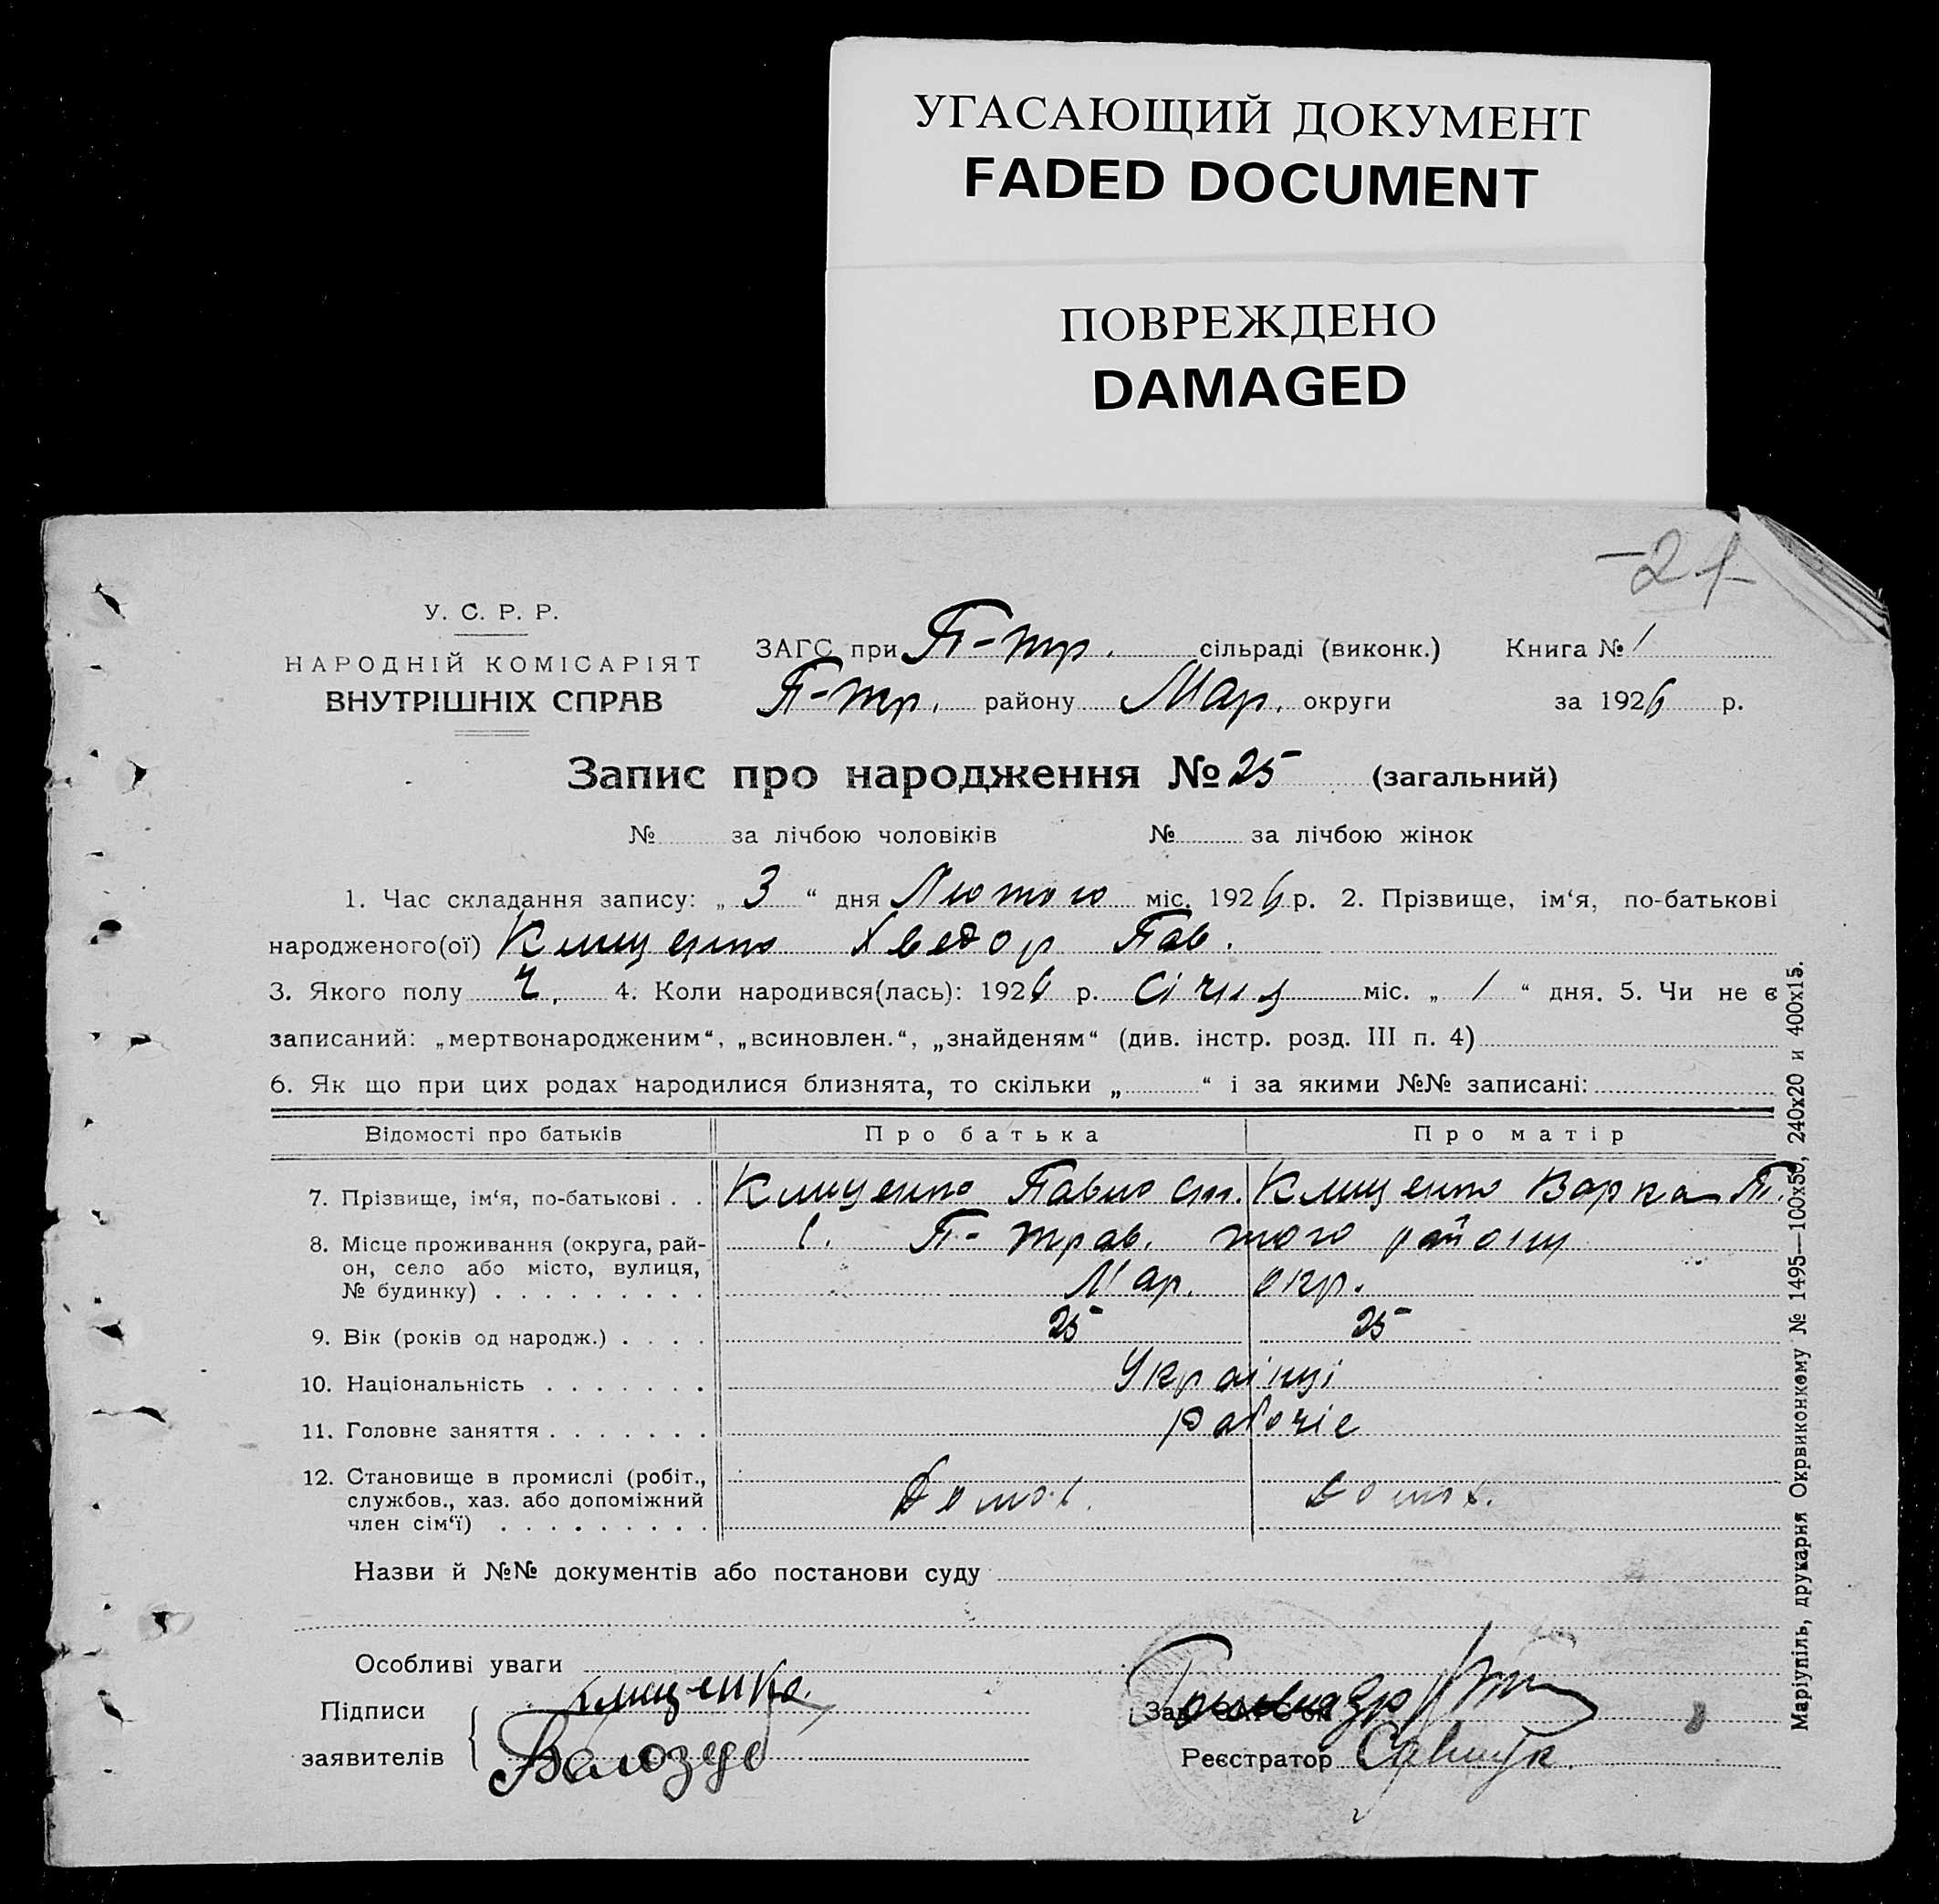 УГАСАЮЩИЙ ДОКУМЕНТ
FADED DOCUMENT
ПОВРЕЖДЕНО
DAMAGED
-21-
У. С. Р. Р.
НАРОДНІЙ КОМІСАРІЯТ
ВНУТРІШНІХ СПРАВ
ЗАГС при П-тр. сільраді (виконк.) Книга № 1
П-тр. району Мар. округи за 1926 р.
Запис про народження № 25 (загальний)
№ за лічбою чоловіків № за лічбою жінок
1. Час складання запису: „ 3 “ дня Лютого міс. 1926 р. 2. Прізвище, ім‘я, по-батькові
народженого(ої) Клищенко Хведор Пав.
3. Якого полу Ч. 4. Коли народився(лась): 1926 р. Січня міс. „ 1 “ дня. 5. Чи не є
записаний: „мертвонародженим“, „всиновлен.“, „знайденям“ (див. інстр. розд. III п. 4)
6. Як що при цих родах народилися близнята, то скільки „ “ і за якими №№ записані:
Відомості про батьків Про батька Про матір
7. Прізвище, ім‘я, по-батькові . . Клищенко Павло Клищенко Варка П.
8. Місце проживання (округа, рай-
он, село або місто, вулиця,
№ будинку) . . . . . . . . .
с. П-трав. того району
Мар. окр.
9. Вік (років од народж.) . . . . 25 25
10. Національність . . . . . . . Українці
11. Головне заняття . . . . . . . рабочіе
12. Становище в промислі (робіт.,
службов., хаз. або допоміжний
член сім‘ї) . . . . . . . . .
Назви й №№ документів або постанови суду
Особливі уваги
Підписи Клищенко
заявителів Реєстратор Савчук
Маріупіль, друкарня Окрвиконкому № 1495—100х50, 240х20 и 400х15.